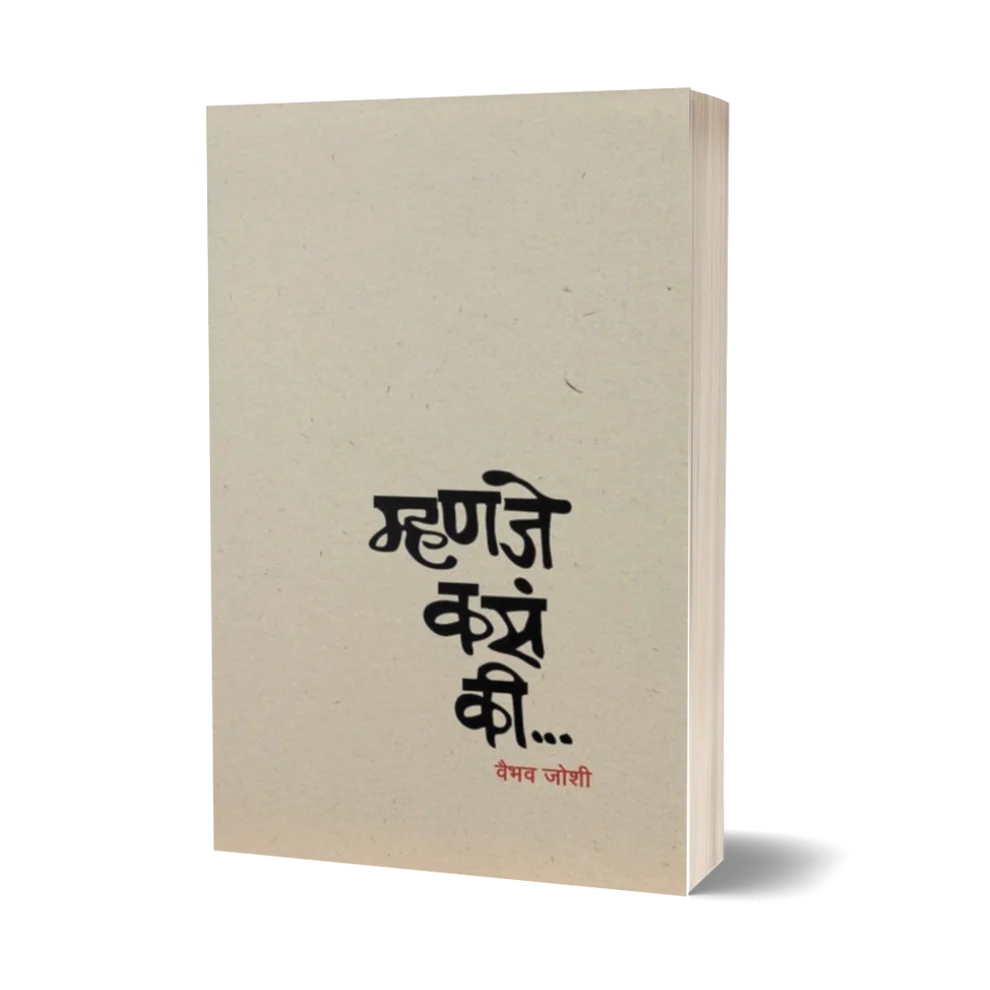 म्हणजे
कसं
की...
वैभव जोशी